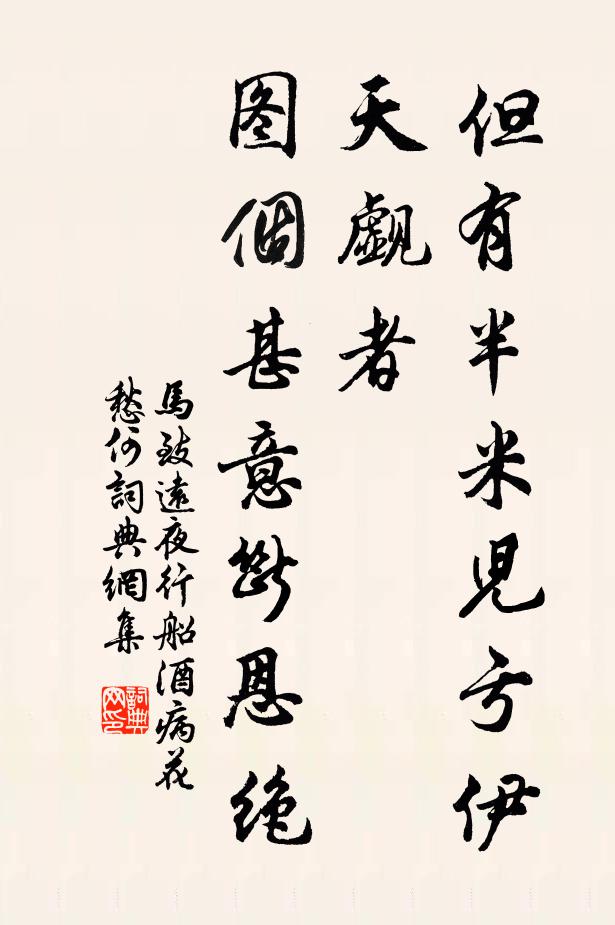 但有半米兒亏伊
天覷者
图個甚意断恩绝
馬致遠夜行船酒病花
愁何詞典網集
詞典
网印